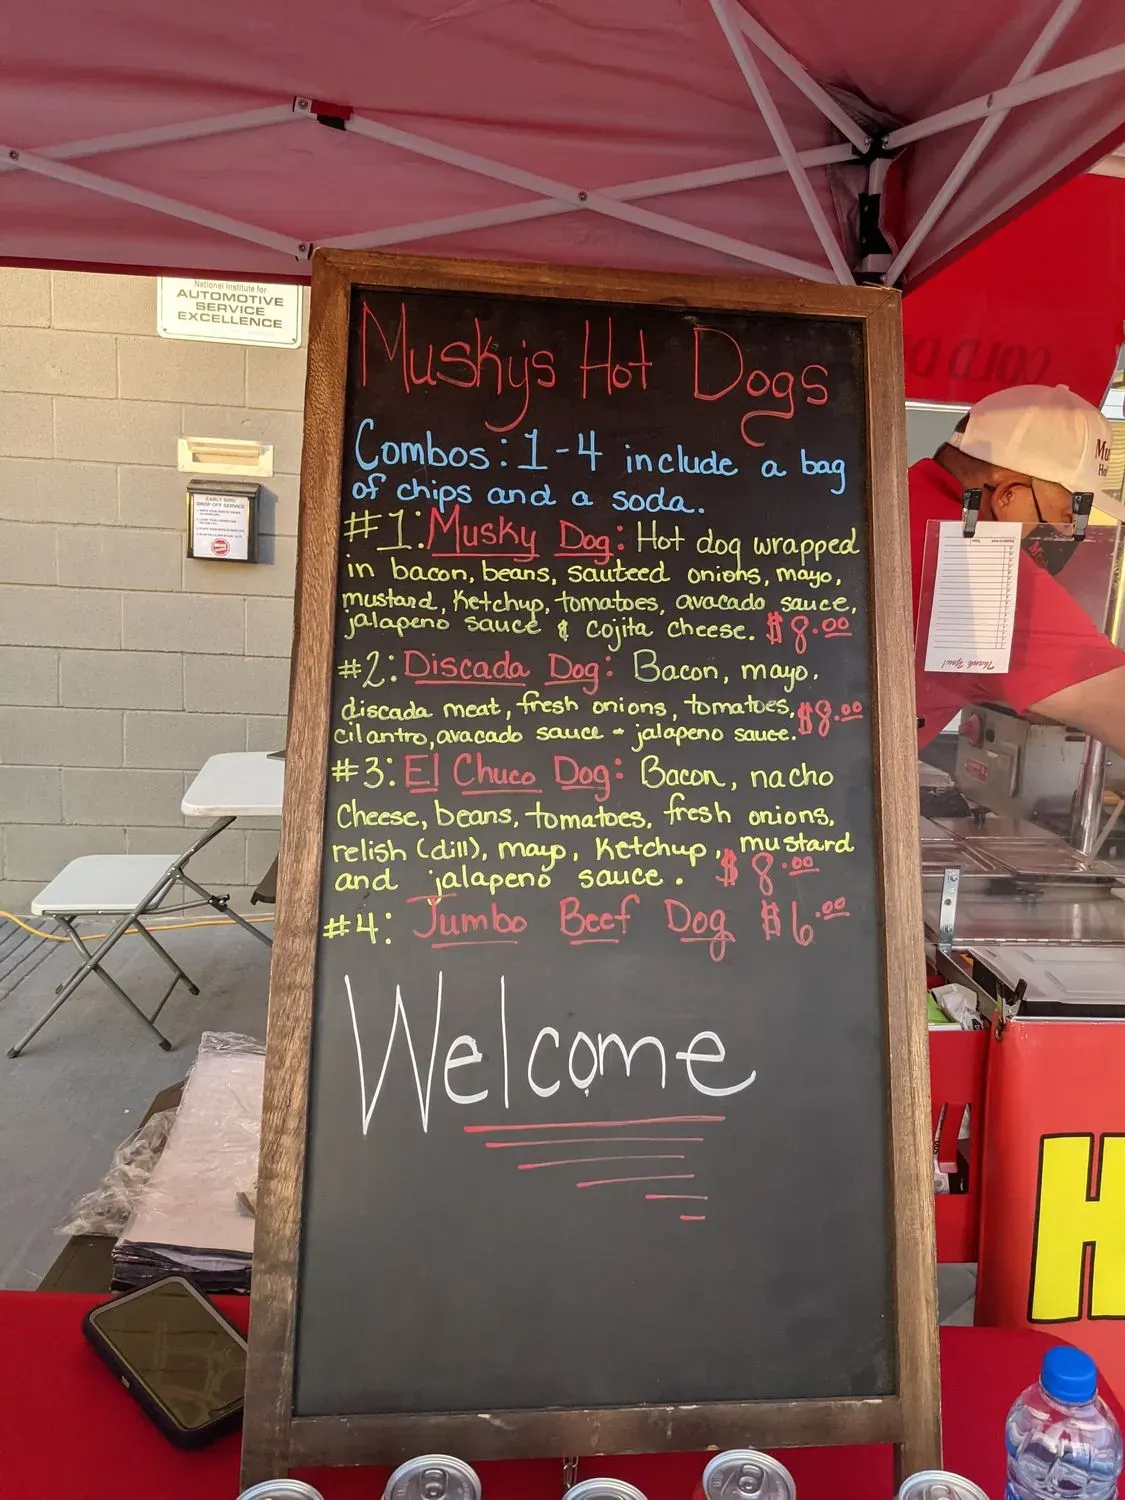 National Institute for
AUTOMOTIVE
SERVICE
EXCELLENCE
Musky's Hot Dogs
Combos: 1-4 include a bag
of chips and a soda.
#1: Musky Dog: Hot dog wrapped
in bacon, beans, sauteed onions, mayo,
mustard, Ketchup, tomatoes, avacado sauce,
jalapeno sauce & Cojita cheese. $8.00
#2: Discada Dog: Bacon, mayo.
discada meat, fresh onions, tomatoes, $8.00
cilantro, avacado sauce - jalapeno sauce.
#3: El Chuco Dog: Bacon, nacho
Cheese, beans, tomatoes, fresh onions,
relish (dill), mayo, Ketchup, mustard
and jalapeno sauce. $8.00
#4: Jumbo Beef Dog $6.00
Welcome
EARLY BIRD
DROP OFF SERVICE
COLD D
Thank You!
H